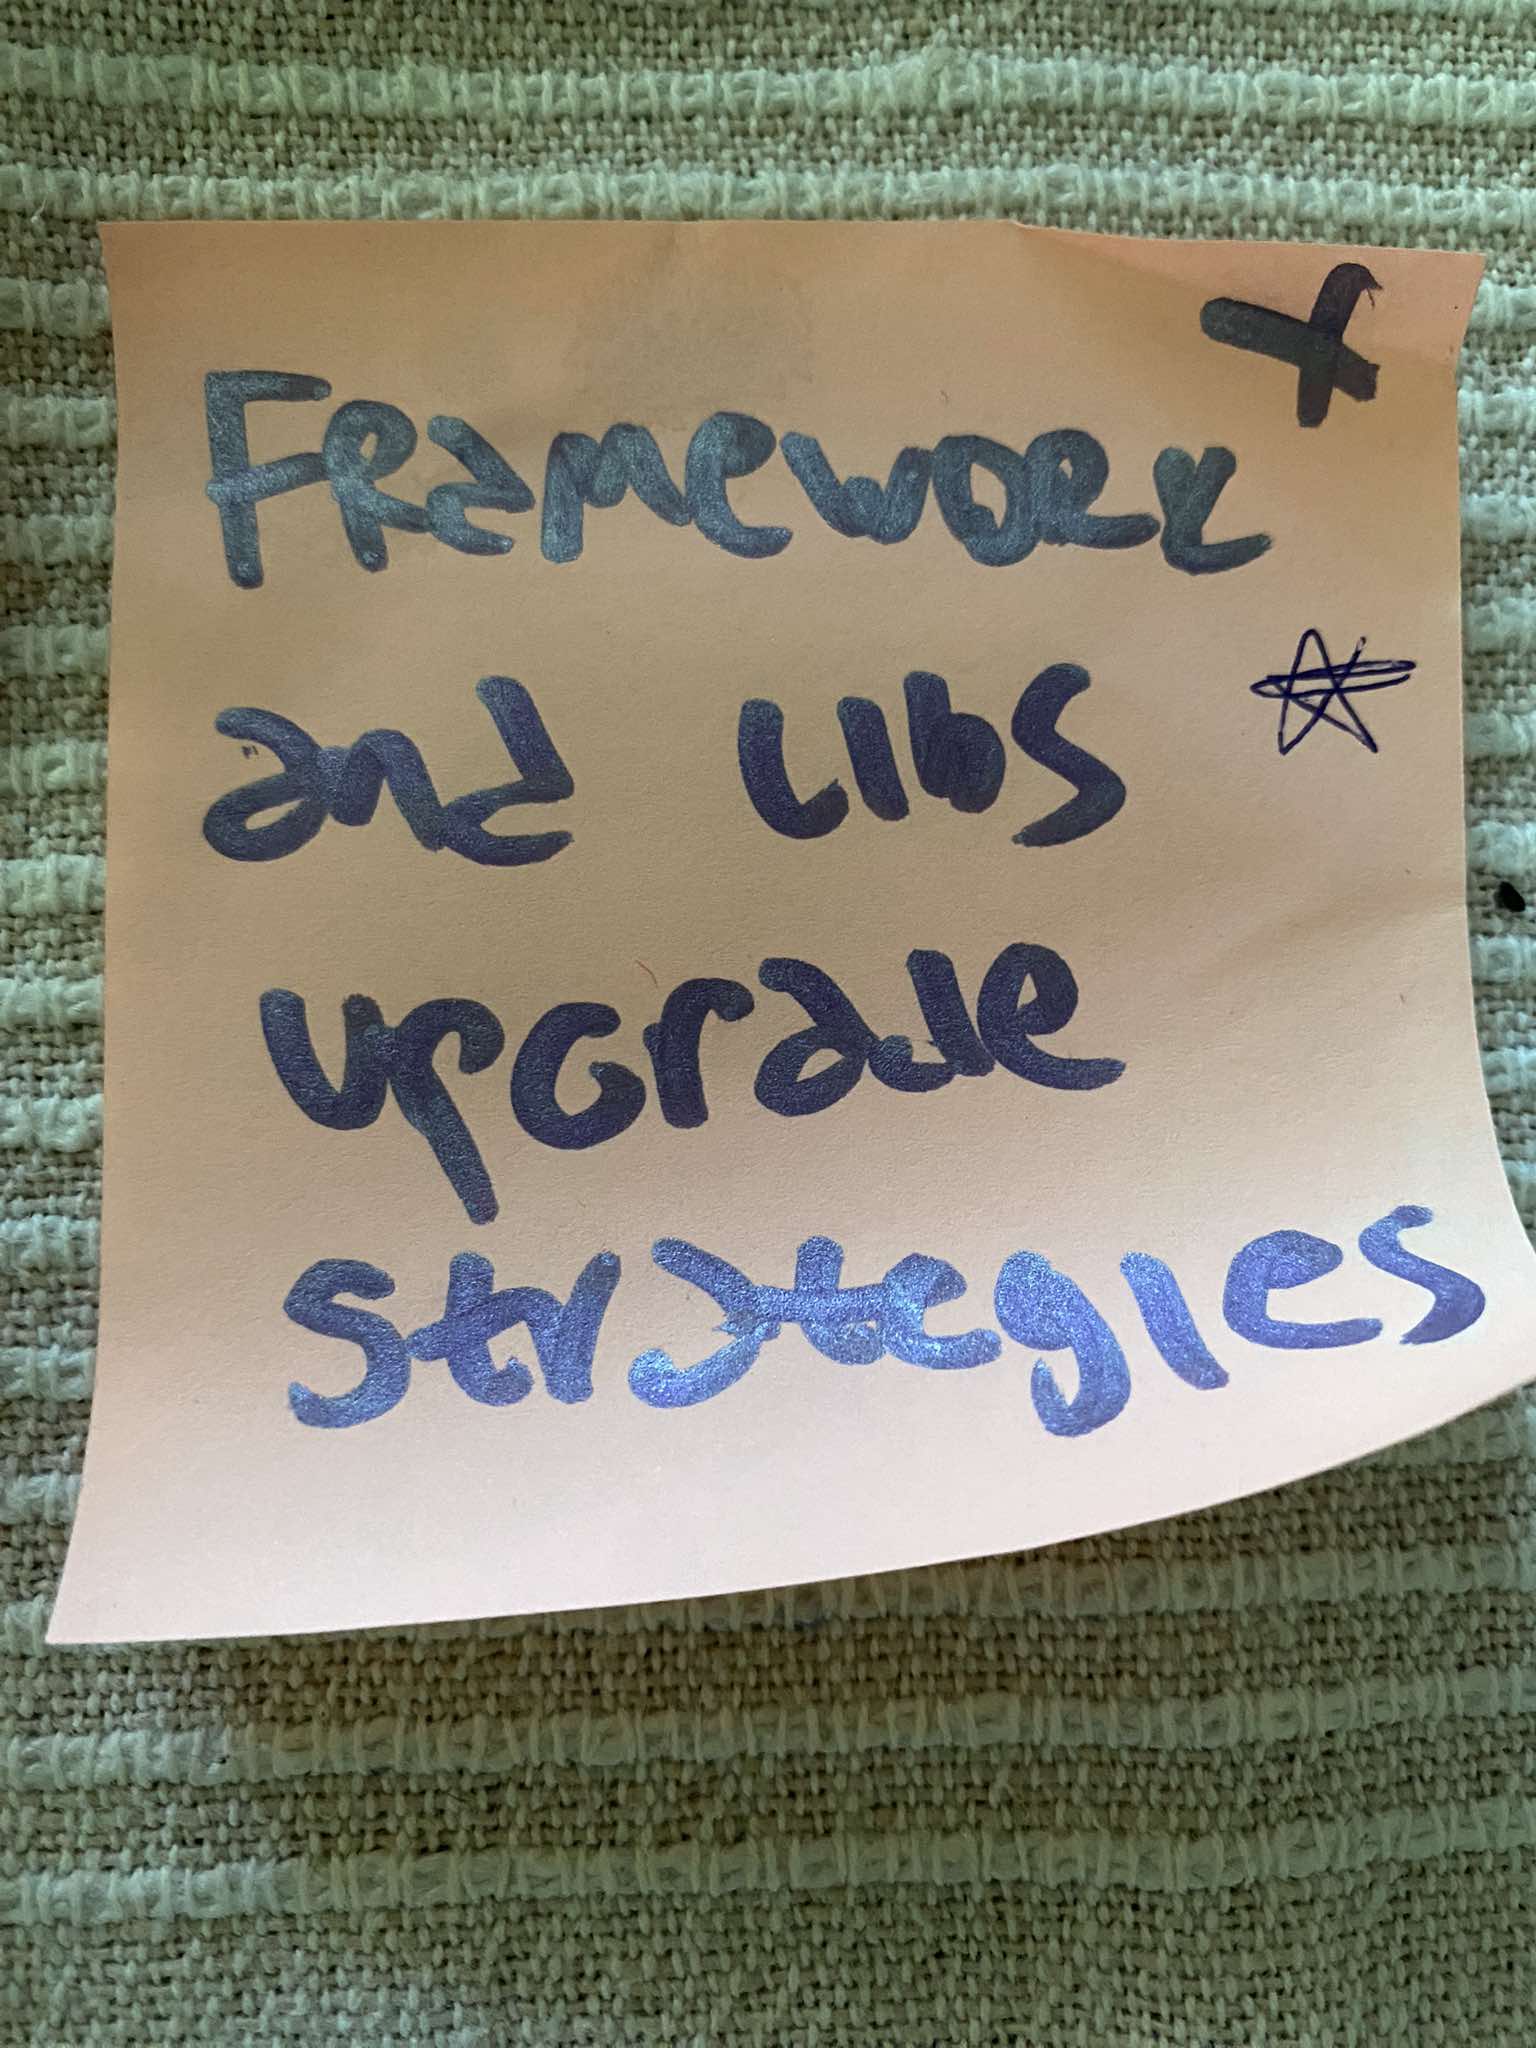 Framework
and Libs
upgrade
strategies